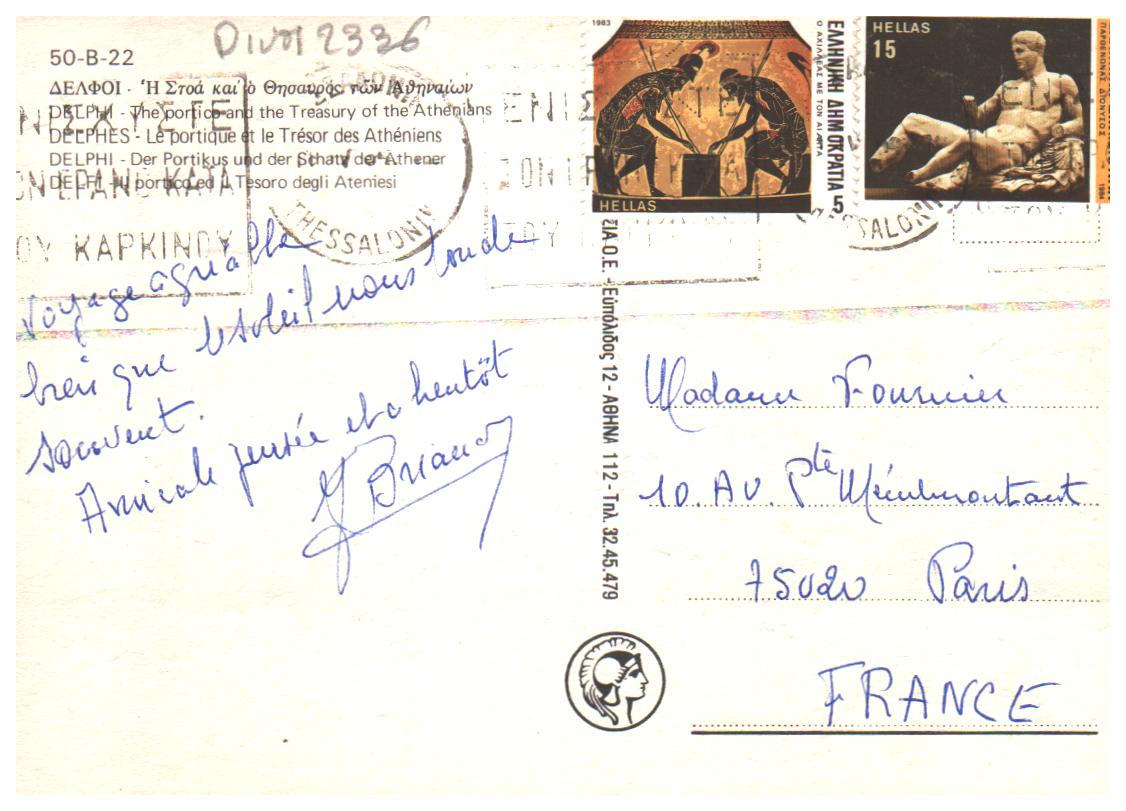 50-B-22
ΔΕΛΦΟΙ - Ἡ Στοά καὶ ὁ Θησαυρός τῶν Ἀθηναίων
DELPHI - The portico and the Treasury of the Athenians
DELPHES - Le portique et le Trésor des Athéniens
DELPHI - Der Portikus und der Schatz der Athener
DELFI - Il portico ed il Tesoro degli Ateniesi
2336
ΕΝΙΣ
ΤΟΝ ΕΡΑΝΟ ΚΑΤΑ
ΟΥ ΚΑΡΚΙΝΟΥ
THESSALONIK
1983
HELLAS
Ο ΑΧΙΛΛΕΑΣ ΜΕ ΤΟΝ ΑΙΑΝΤΑ
ΕΛΛΗΝΙΚΗ ΔΗΜΟΚΡΑΤΙΑ 5
HELLAS
15
ΠΑΡΘΕΝΩΝΑΣ ΔΙΟΝΥΣΟΣ
1984
SALONI
Voyage agréable
bien que le soleil nous boude
souvent.
Amicale pensée et à bientôt
Briand
ΣΙΑ Ο.Ε. - Εὐπόλιδος 12 - ΑΘΗΝΑ 112 - Τηλ. 32.45.479
Madame Fournier
10. AV. Pte Ménilmontant
75020 Paris
FRANCE